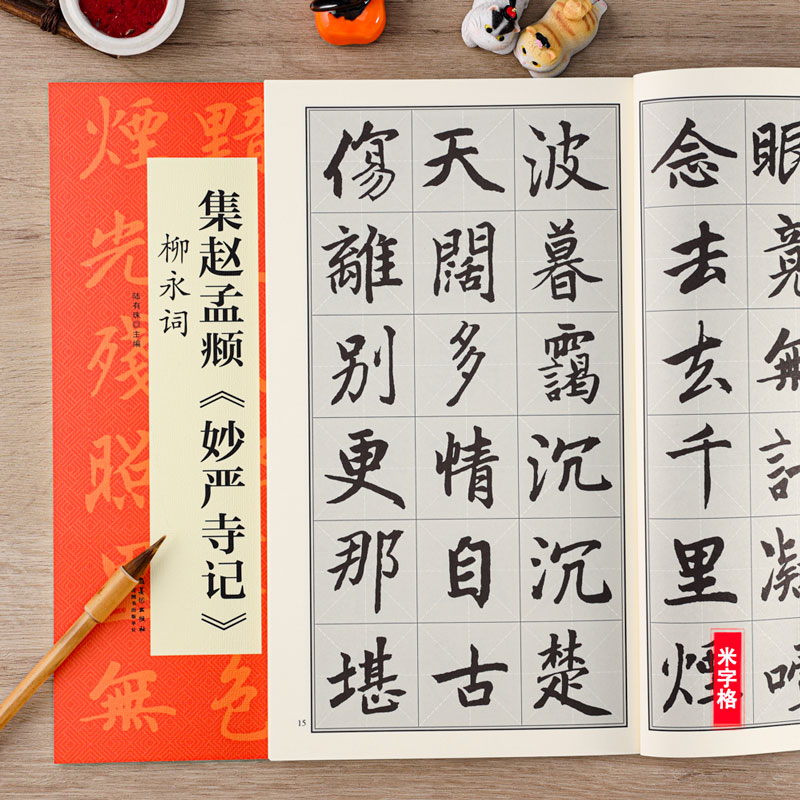 集赵孟𫖯《妙严寺记》
柳永词
陆有珠◎主编
黯
色
煙光殘照
無
眼竟無
念去去千里煙
波暮靄沉沉楚
天闊多情自古
傷離別更那堪
15
米字格